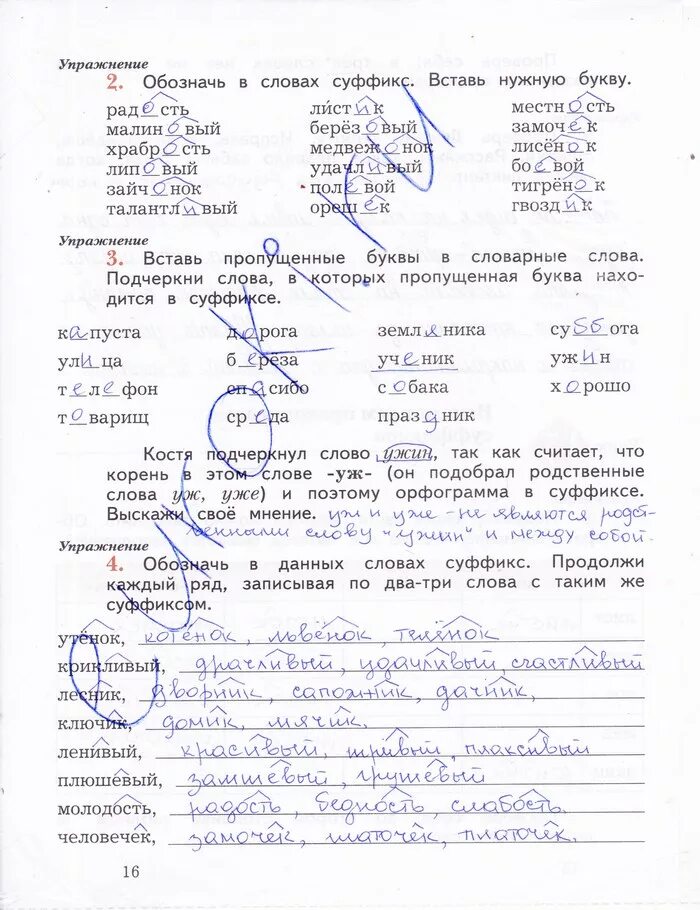 Упражнение
2. Обозначь в словах суффикс. Вставь нужную букву.
радость листик местность
малиновый берёзовый замочек
храбрость медвежонок лисёнок
липовый удачливый боевой
зайчонок полевой тигрёнок
талантливый орешек гвоздик
Упражнение
3. Вставь пропущенные буквы в словарные слова.
Подчеркни слова, в которых пропущенная буква нахо-
дится в суффиксе.
капуста дорога земляника суббота
улица берёза ученик ужин
телефон спасибо собака хорошо
товарищ среда праздник
Костя подчеркнул слово ужин, так как считает, что
корень в этом слове -уж- (он подобрал родственные
слова уж, уже) и поэтому орфограмма в суффиксе.
Выскажи своё мнение. уж и уже - не являются родст-
венными слову "ужин" и между собой.
Упражнение
4. Обозначь в данных словах суффикс. Продолжи
каждый ряд, записывая по два-три слова с таким же
суффиксом.
утёнок, котёнок, львёнок, телёнок
крикливый, драчливый, удачливый, счастливый
лесник, дворник, сапожник, дачник,
ключик, домик, мячик.
ленивый, красивый, игривый, плаксивый
плюшевый, замшевый, грушевый
молодость, радость, бедность, слабость.
человечек, замочек, платочек.
16